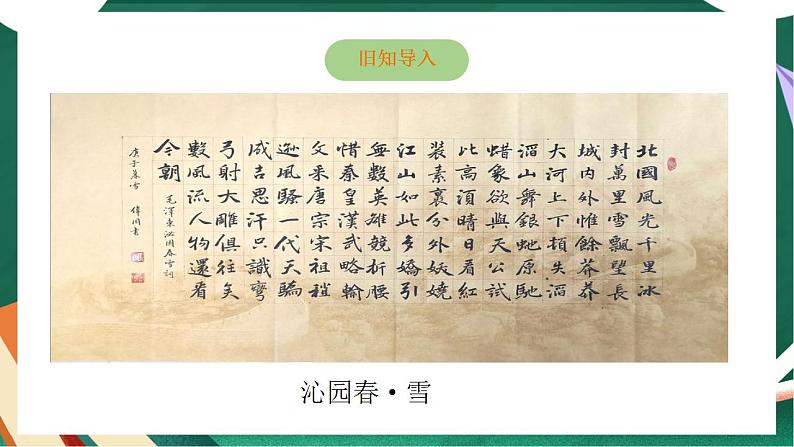 旧知导入
北國風光千里冰
封萬里雪飄望長
城內外惟餘莽莽
大河上下頓失滔
滔山舞銀蛇原馳
蜡象欲與天公試
比高須晴日看紅
裝素裹分外妖嬈
江山如此多嬌引
無數英雄競折腰
惜秦皇漢武略輸
文采唐宗宋祖稍
遜風騷一代天驕
成吉思汗只識彎
弓射大雕俱往矣
數風流人物還看
今朝
毛澤東沁園春雪詞
庚子暮雪
沁园春·雪